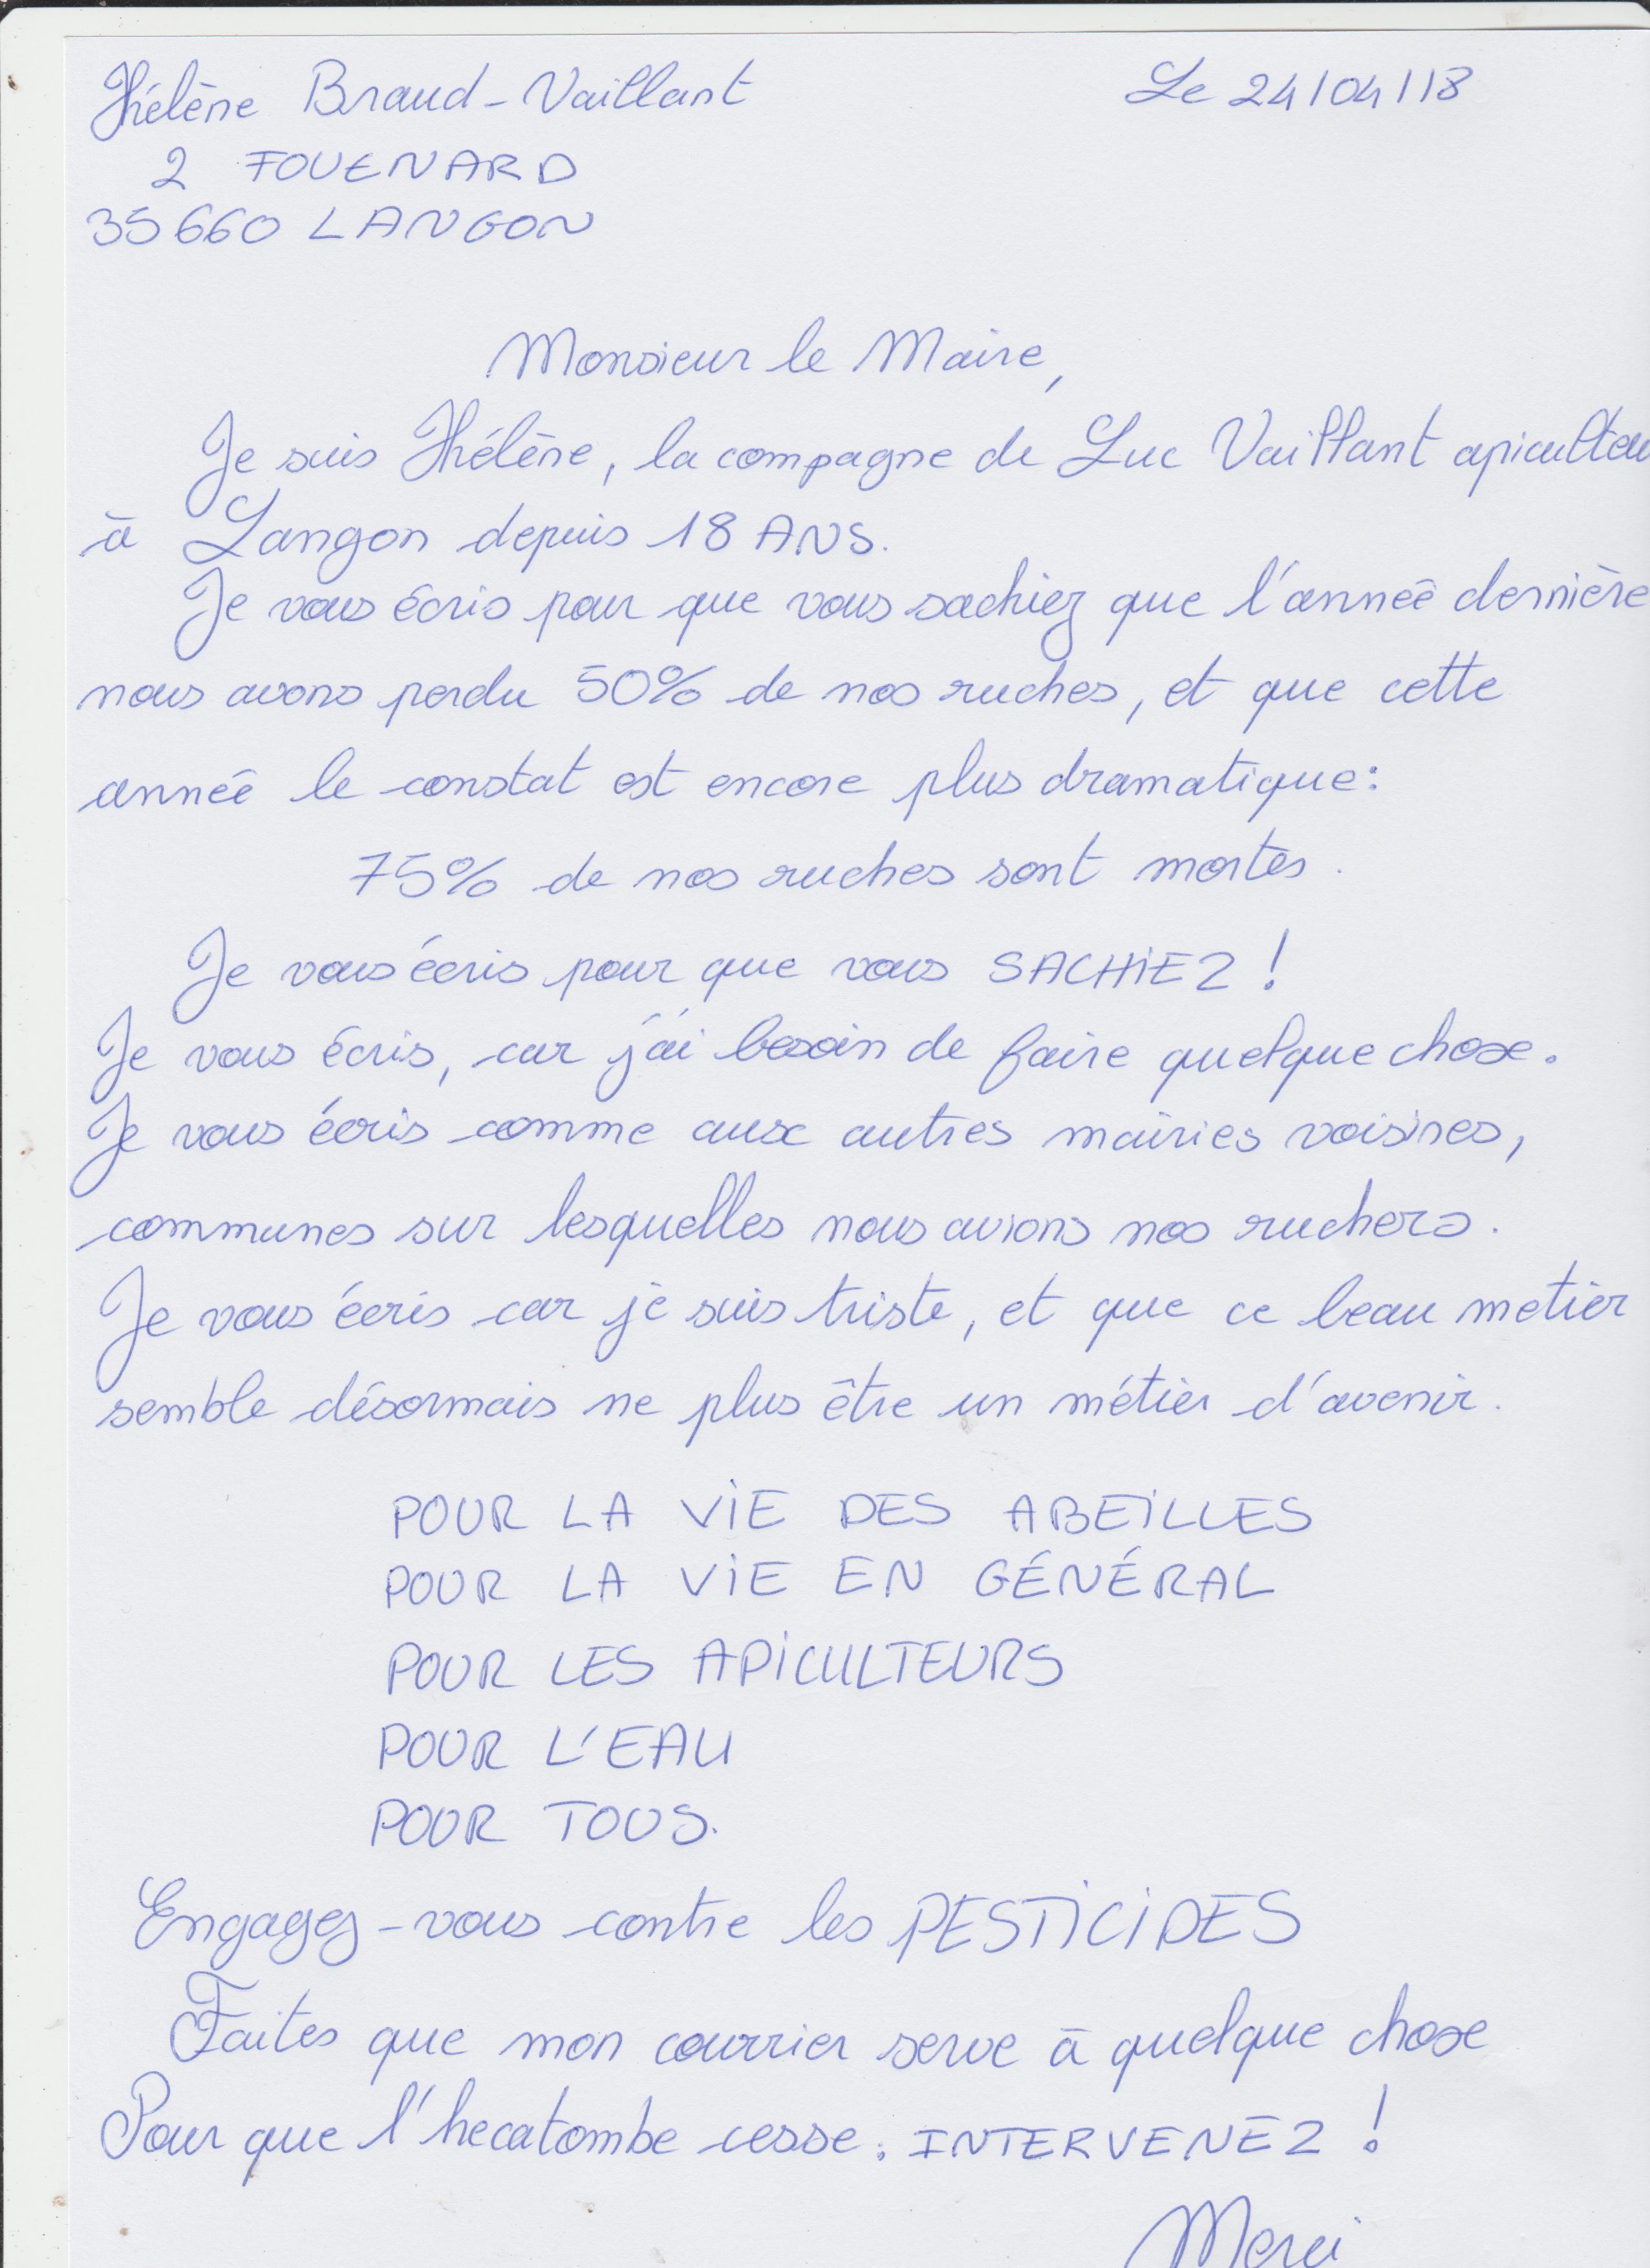 Hélène Braud-Vaillant
Le 24/04/18
2 FOUENARD
35660 LANGON
Monsieur le Maire,
Je suis Hélène, la compagne de Luc Vaillant apiculteu
à Langon depuis 18 ANS.
Je vous écris pour que vous sachiez que l'année dernière
nous avons perdu 50% de nos ruches, et que cette
année le constat est encore plus dramatique:
75% de nos ruches sont mortes.
Je vous écris pour que vous SACHIEZ !
Je vous écris, car j'ai besoin de faire quelque chose.
Je vous écris comme aux autres mairies voisines,
communes sur lesquelles nous avions nos ruchers.
Je vous écris car je suis triste, et que ce beau metier
semble désormais ne plus être un métier d'avenir.
POUR LA VIE DES ABEILLES
POUR LA VIE EN GÉNÉRAL
POUR LES APICULTEURS
POUR L'EAU
POUR TOUS.
Engagez-vous contre les PESTICIDES
Faites que mon courrier serve à quelque chose
Pour que l'hecatombe cesse: INTERVENEZ !
Merci